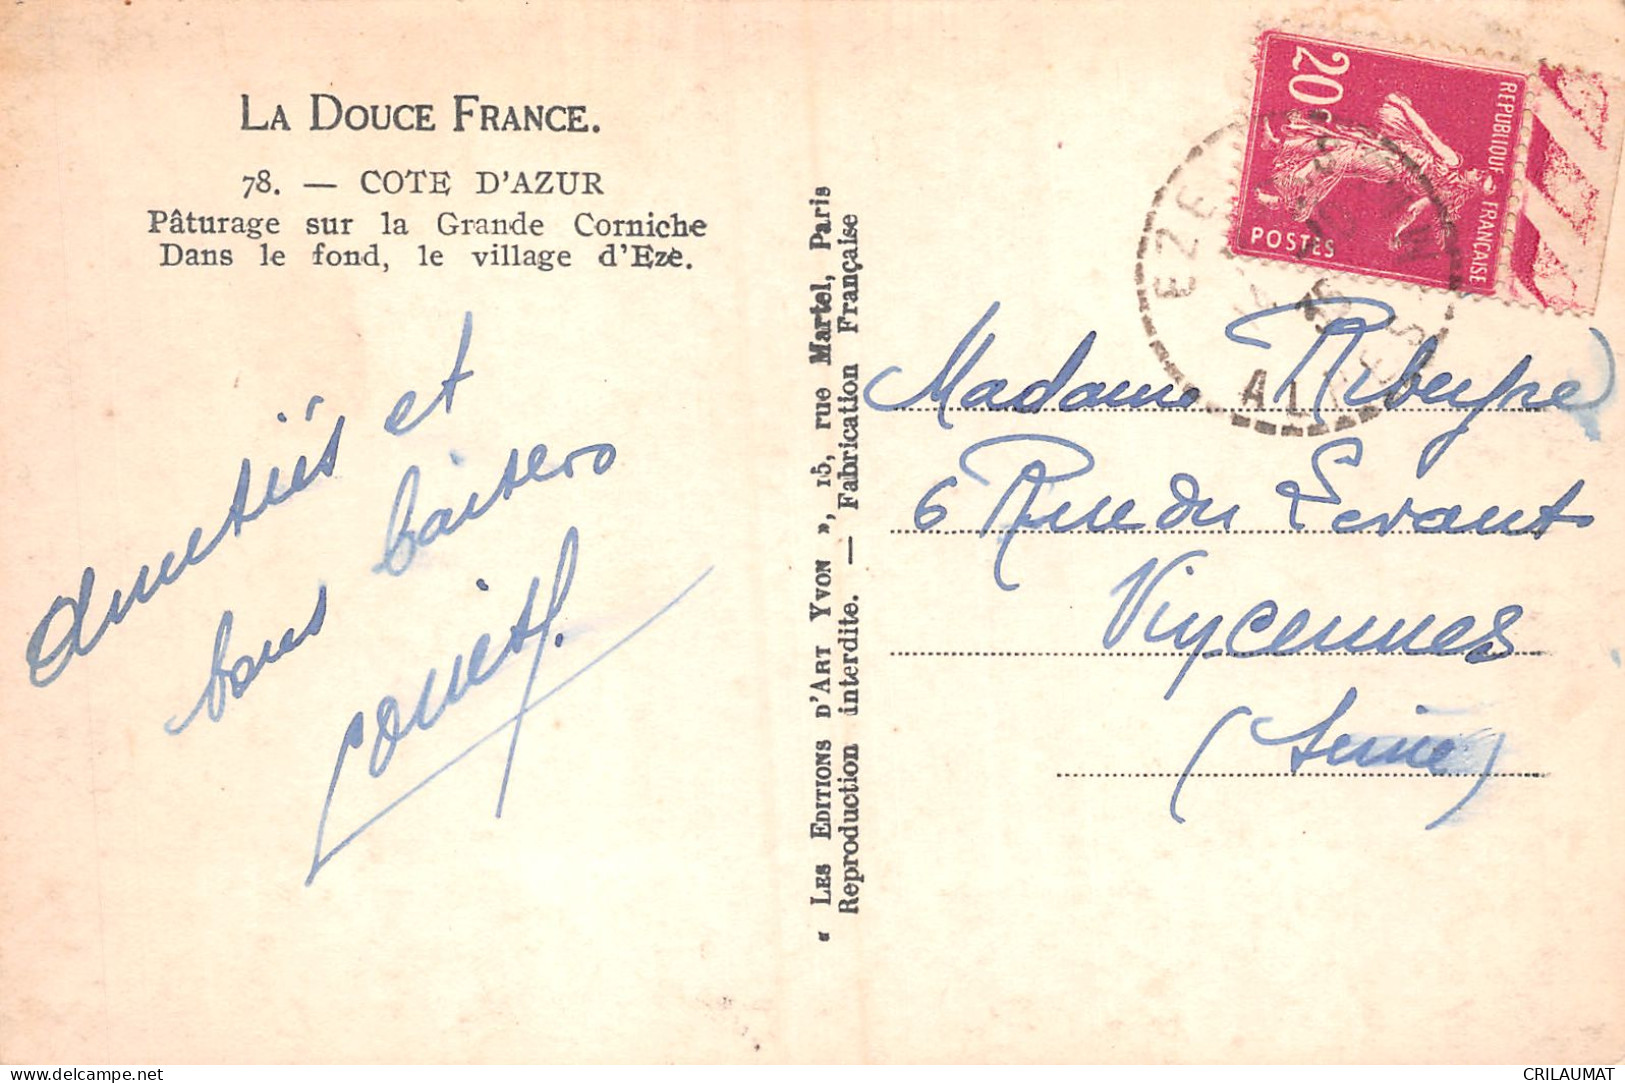 LA DOUCE FRANCE.
78. — COTE D'AZUR
Pâturage sur la Grande Corniche
Dans le fond, le village d'Eze.
Amitiés et
bons baisers
« LES EDITIONS D'ART YVON », 15, rue Martel, Paris
Reproduction interdite. — Fabrication Française
20c
POSTES
REPUBLIQUE FRANÇAISE
EZE
Madame
6 Rue du Levant
Vincennes
(Seine)
delcampe.net
CRILAUMAT